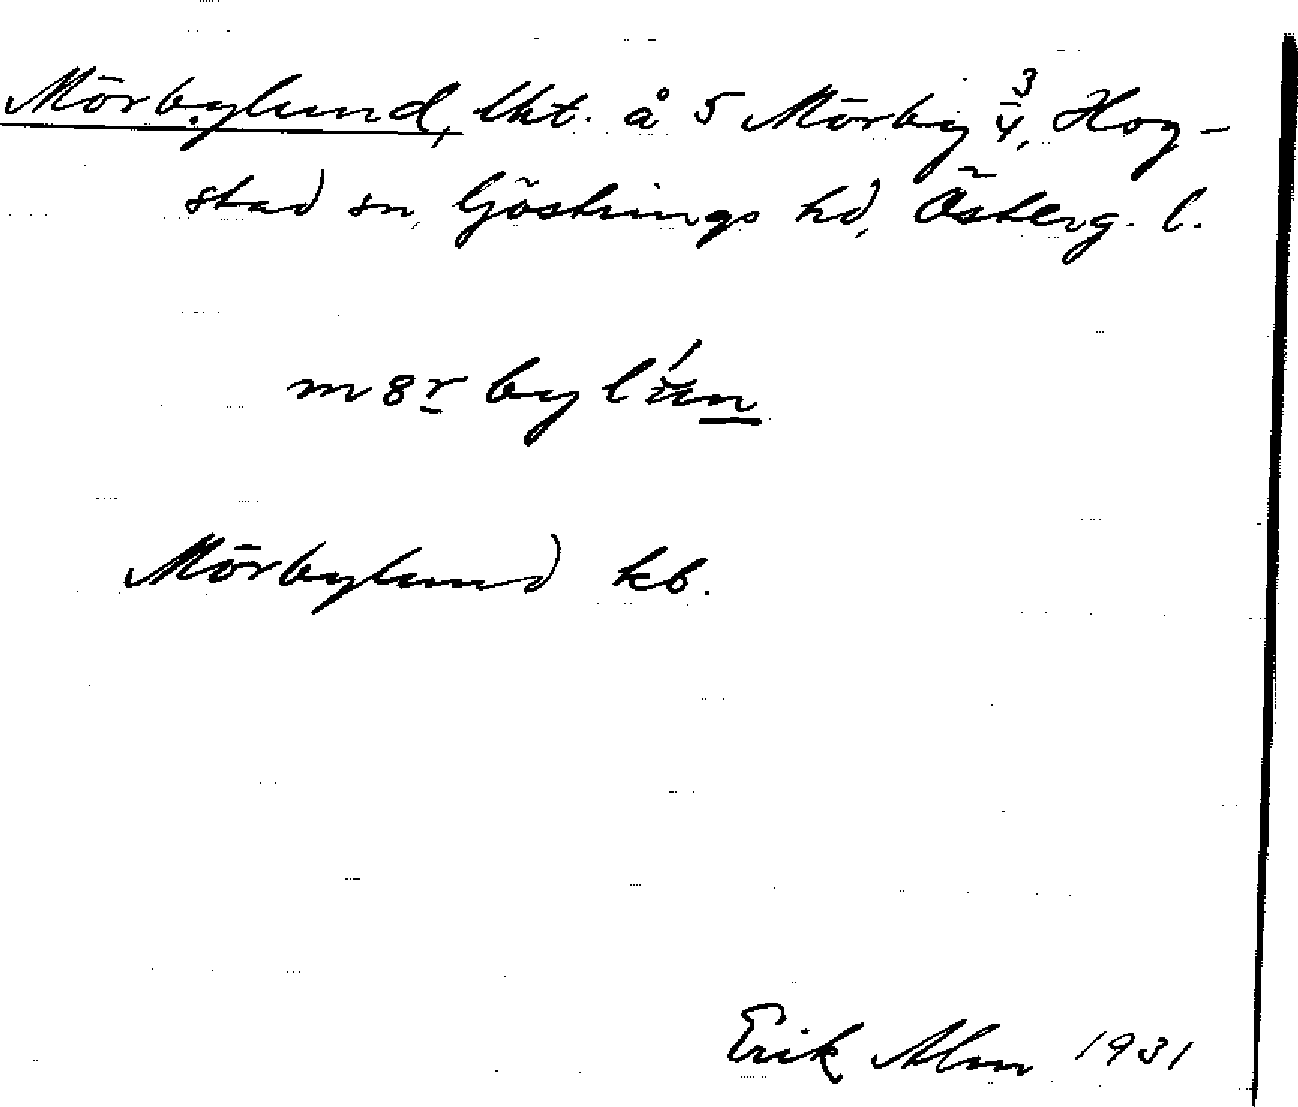 Mörbylund, lht. å 5 Mörby 3/4, Hog-
stad sn, Göstrings hd, Österg. l.
m8r by lún
Mörbylund kb.
Erik Alm 1931